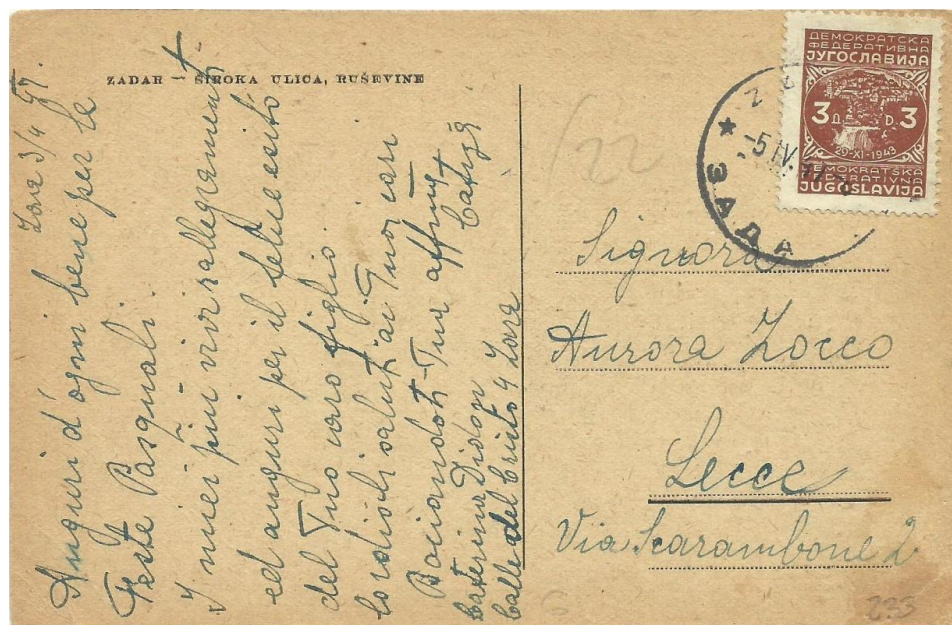 ZADAR — ŠIROKA ULICA, RUŠEVINE
Zara 3/4 47.
Auguri d'ogni bene per le
Feste Pasquali.
I miei più vivi rallegramenti
ed auguri per il felice esito
del Tuo caro figlio.
Cordiali saluti ai Tuoi cari
Baciandoti Tua affma
Caterina
Calle del Cristo 4 Zara
ДЕМОКРАТСКА
ФЕДЕРАТИВНА
ЈУГОСЛАВИЈА
3 Д. D. 3
29-XI-1943
DEMOKRATSKA
FEDERATIVNA
JUGOSLAVIJA
-5.IV.47
ЗАДА
122
Signora
Aurora Zocco
Lecce
Via Scarambone 2
233